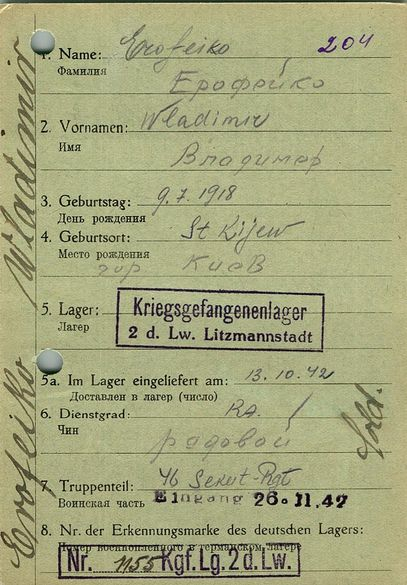 204
1. Name: Erofeiko
Фамилия
Ерофейко
2. Vornamen: Wladimir
Имя
Владимер
3. Geburtstag: 9.7.1918
День рождения
4. Geburtsort: St Kijew
Место рождения
гор Киев
5. Lager:
Лагерь
Kriegsgefangenenlager
2 d. Lw. Litzmannstadt
5a. Im Lager eingeliefert am: 13.10.42
Доставлен в лагерь (число)
6. Dienstgrad: RA.
Чин
рядовой
7 Truppenteil: 46 Rgt
Воинская часть
Eingang 26.11.42
8. Nr. der Erkennungsmarke des deutschen Lagers:
Номер военнопленного в германском лагере
Nr. 1155 Kgf.Lg.2 d. Lw.
Erofeiko Wladimir
Sold.